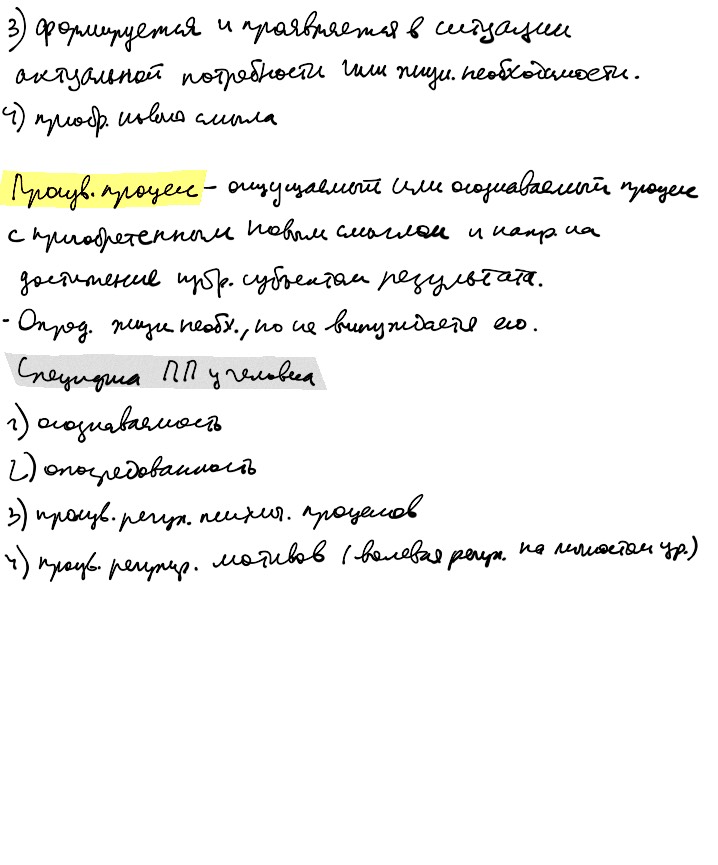 3) формируется и проявляется в ситуации
актуальной потребности или жизн. необходимости.
4) приобр. нового смысла
Произв. процесс – ощущаемый или осознаваемый процесс
с приобретенным новым смыслом и напр. на
достижение субъектом результата.
- Опред. жизн необх., но не вынуждается ею.
Специфика ПП у человека
1) осознаваемость
2) опосредованность
3) произв. регул. психич. процессов
4) произв. мотивов (волевая регул. на личностном ур.)